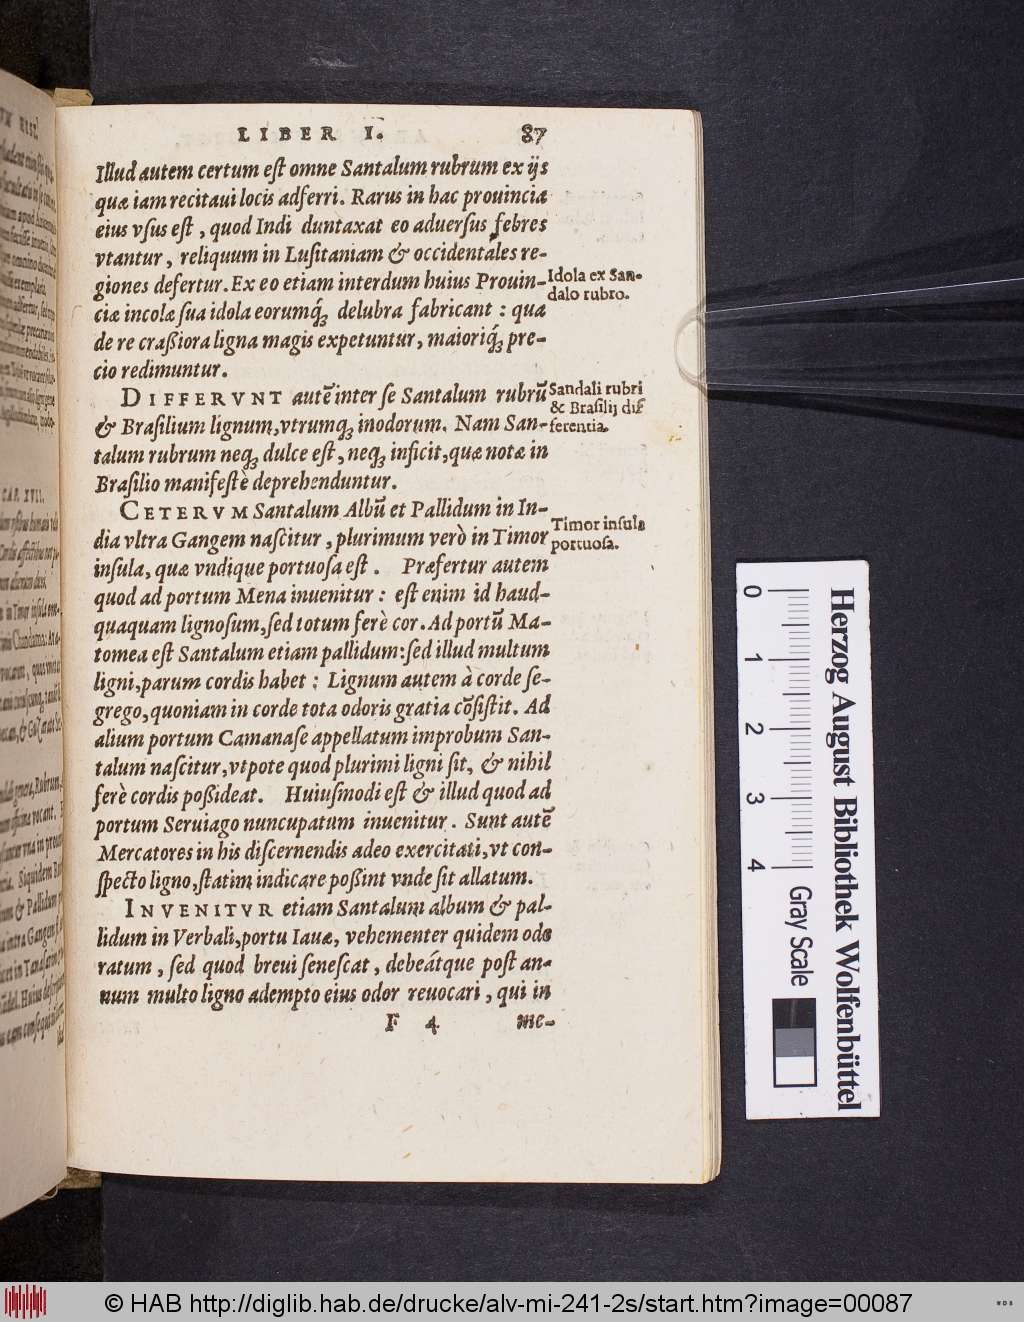 LIBER I. 87
Illud autem certum eſt omne Santalum rubrum ex ijs
quæ iam recitaui locis adferri. Rarus in hac prouincia
eius vſus eſt, quod Indi duntaxat eo aduerſus febres
vtantur, reliquum in Luſitaniam & occidentales re-
giones defertur. Ex eo etiam interdum huius Prouin-
ciæ incolæ ſua idola eorumq́ꝫ delubra fabricant : qua
de re craßiora ligna magis expetuntur, maioriq́ꝫ pre-
cio redimuntur.
Idola ex San-
dalo rubro.
DIFFERVNT autē inter ſe Santalum rubrū
& Braſilium lignum, vtrumqꝫ inodorum. Nam San-
talum rubrum neqꝫ dulce eſt, neqꝫ inficit, quæ notæ in
Braſilio manifeſtè deprehenduntur.
Sandali rubri
& Braſilij dif
ferentia.
CETERVM Santalum Albū et Pallidum in In-
dia vltra Gangem naſcitur, plurimum verò in Timor
inſula, quæ vndique portuoſa eſt. Præfertur autem
quod ad portum Mena inuenitur : eſt enim id haud-
quaquam lignoſum, ſed totum ferè cor. Ad portū Ma-
tomea eſt Santalum etiam pallidum: ſed illud multum
ligni, parum cordis habet : Lignum autem à corde ſe-
grego, quoniam in corde tota odoris gratia cōſiſtit. Ad
alium portum Camanaſe appellatum improbum San-
talum naſcitur, vtpote quod plurimi ligni ſit, & nihil
ferè cordis poßideat. Huiuſmodi eſt & illud quod ad
portum Seruiago nuncupatum inuenitur. Sunt autē
Mercatores in his diſcernendis adeo exercitati, vt con-
ſpecto ligno, ſtatim indicare poßint vnde ſit allatum.
Timor inſula
portuoſa.
INVENITVR etiam Santalum album & pal-
lidum in Verbali, portu Iauæ, vehementer quidem odo
ratum, ſed quod breui ſeneſcat, debeátque poſt an-
num multo ligno adempto eius odor reuocari, qui in
F 4 me-
0 1 2 3 4
Herzog August Bibliothek Wolfenbüttel
Gray Scale
© HAB http://diglib.hab.de/drucke/alv-mi-241-2s/start.htm?image=00087